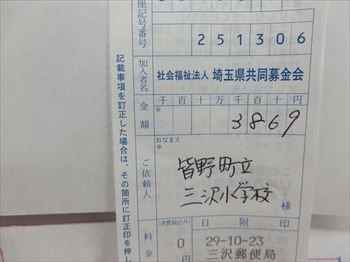 座記号番号
251306
加入者名
社会福祉法人 埼玉県共同募金会
金額
千百十万千百十円
※
3869
おなまえ
ご依頼人
※
皆野町立
三沢小学校
様
(消費税込み)
料金
0
円
日附印
29-10-23
三沢郵便局
記載事項を訂正した場合は、その箇所に訂正印を押し